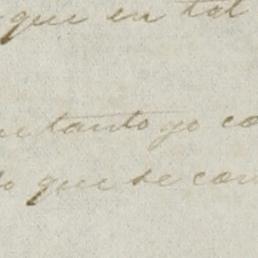 que en tal
tanto yo co
que se con